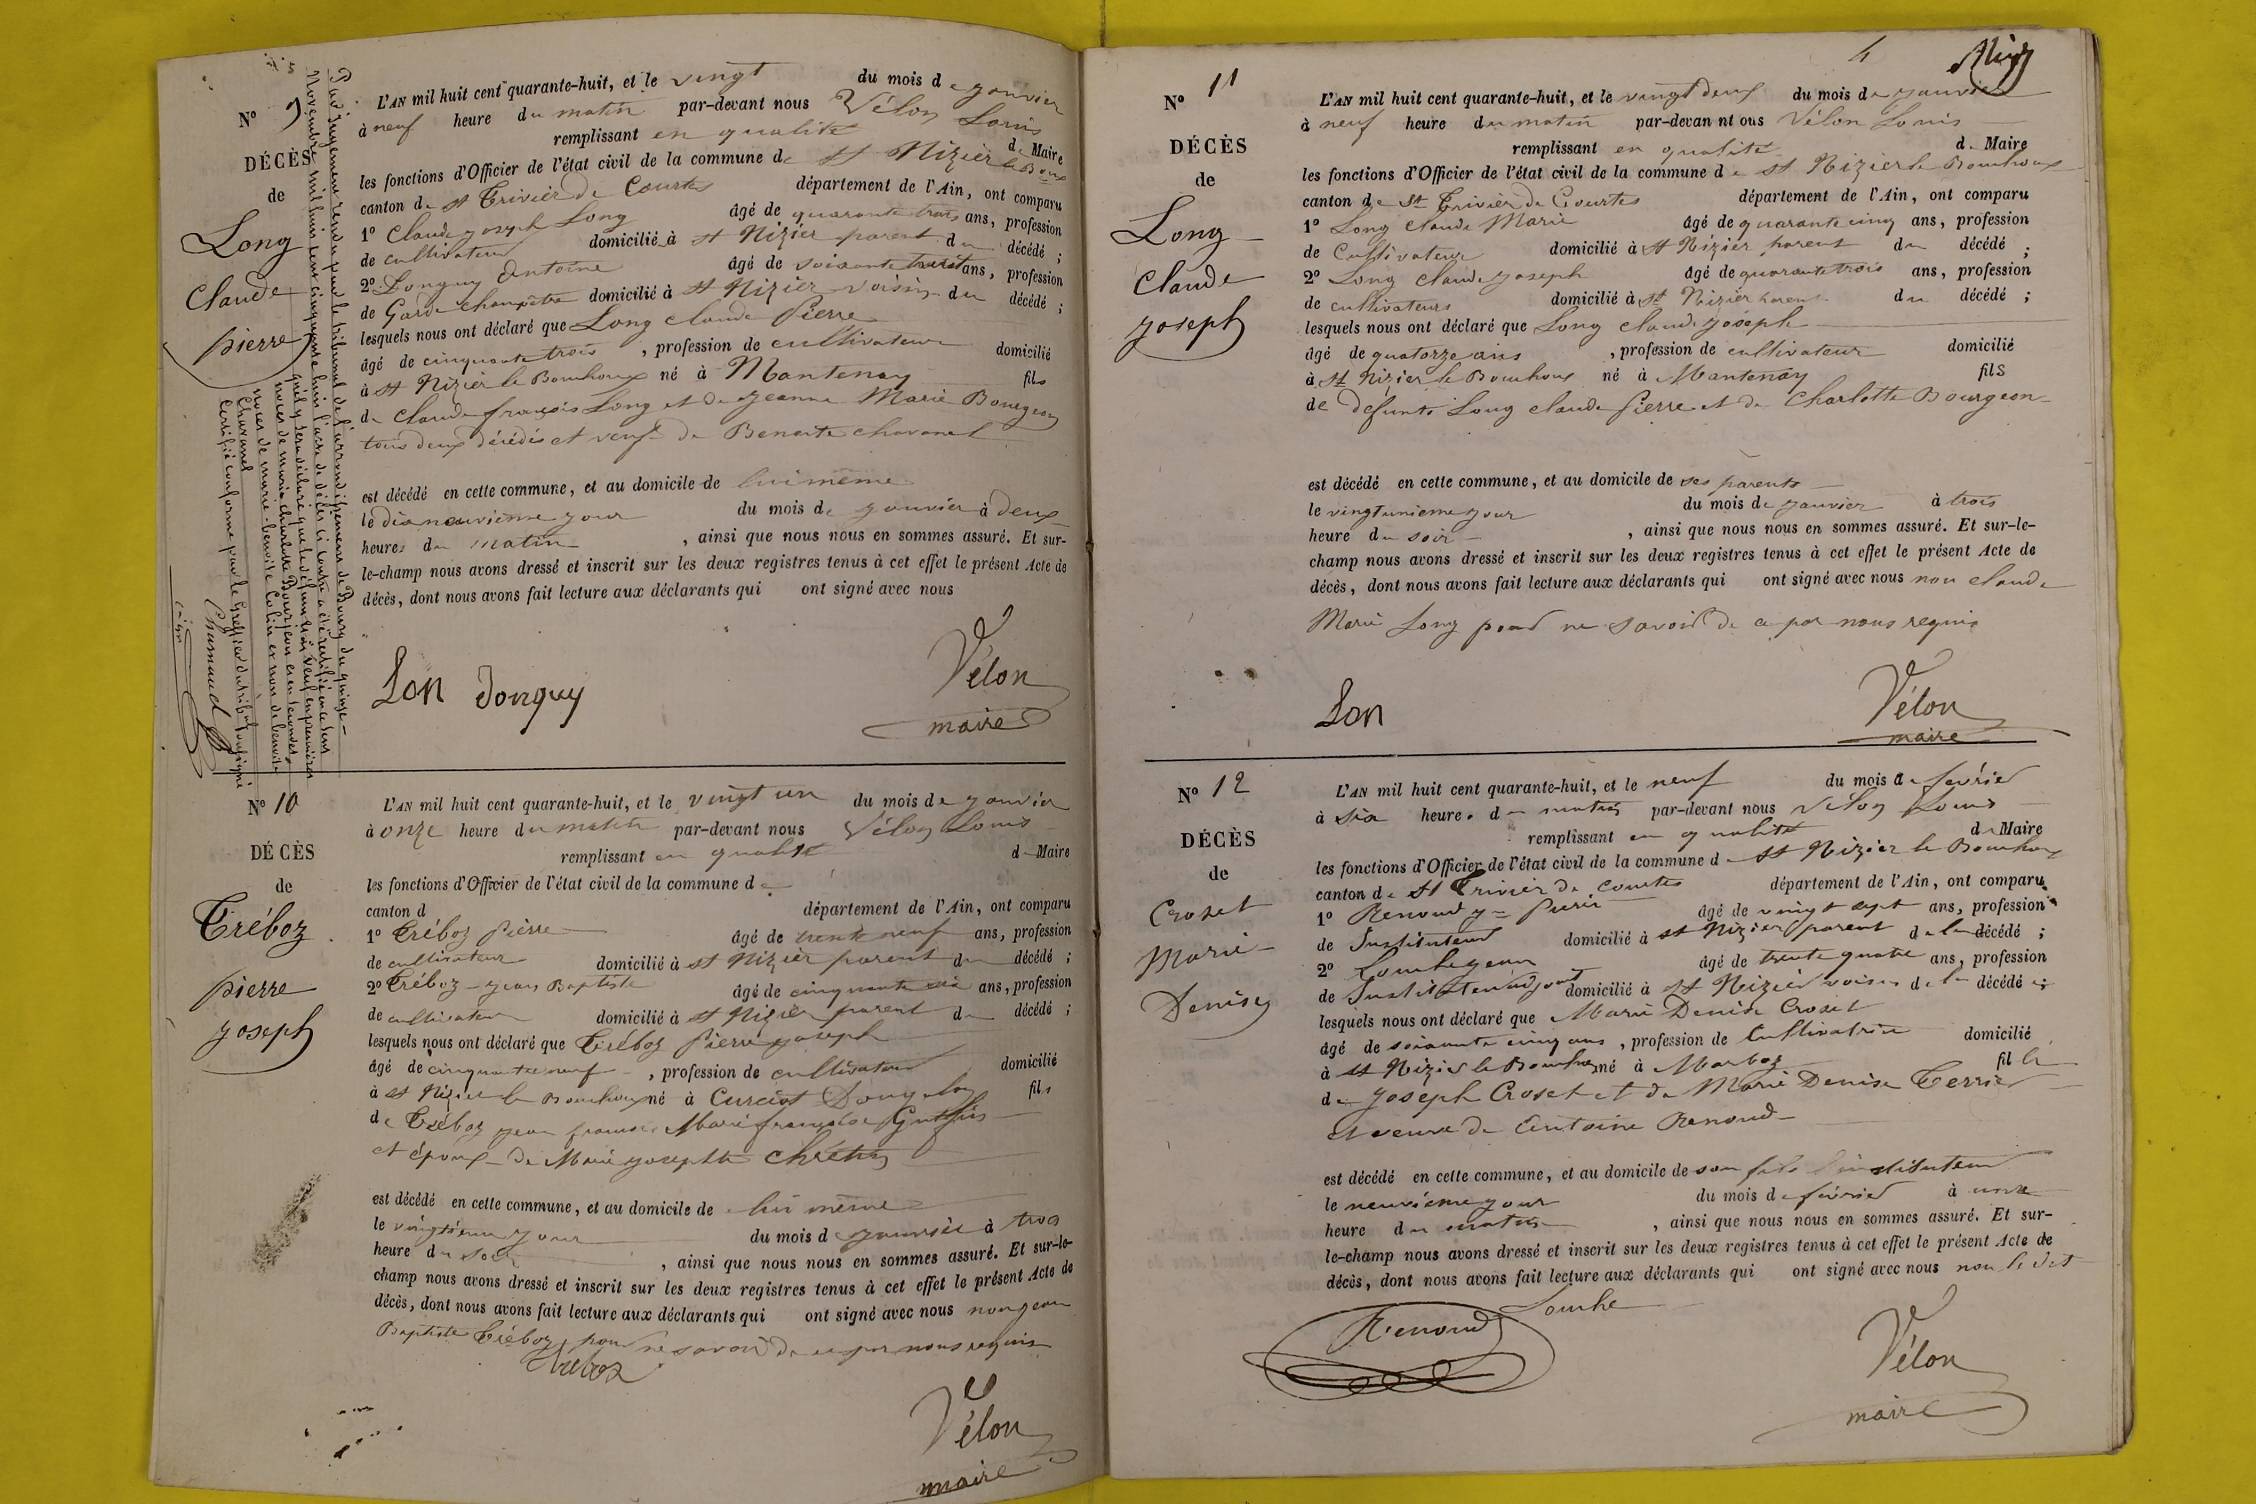 N° 9
DÉCÈS
de
Long
Claude
pierre
L'AN mil huit cent quarante-huit, et le vingt du mois de janvier
à neuf heure du matin par-devant nous Vélon Louis
remplissant en qualité de Maire
les fonctions d'Officier de l'état civil de la commune de St Nizier le Boux
canton de St Trivier de Courtes département de l'Ain, ont comparu
1° Claude joseph Long âgé de quarante trois ans, profession
de cultivateur domicilié à St Nizier parent du décédé ;
2° Longuy Antoine âgé de soixante ans, profession
de Garde champêtre domicilié à St Nizier voisin du décédé ;
lesquels nous ont déclaré que Long claude Pierre
âgé de cinquante trois , profession de cultivateur domicilié
à St Nizier le Bouchoux né à Mantenay fils
de Claude françois Long et de jeanne Marie Bourgeon
tous deux décédés et veuf de Benoite chavanel
est décédé en cette commune, et au domicile de lui même
le dix neuvième jour du mois de janvier à deux
heures du matin , ainsi que nous nous en sommes assuré. Et sur-
le-champ nous avons dressé et inscrit sur les deux registres tenus à cet effet le présent Acte de
décès, dont nous avons fait lecture aux déclarants qui ont signé avec nous
Lon Jonguy Vélon
maire
Par jugement rendu par le tribunal de l'arrondissement de Bourg du quinze
Novembre mil huit cent cinquante huit l'acte de décès ci contre a été rectifié en ce sens
qu'il y sera déclaré que le défunt était veuf en premières
noces de marie charlotte Bourjon et en secondes
noces de marie-benoite Colin et non de benoite
Chavanel
Certifié conforme par le Greffier du tribunal soussigné
Chamaud
N° 10
DÉCÈS
de
Tréboz
pierre
joseph
L'AN mil huit cent quarante-huit, et le vingt un du mois de janvier
à onze heure du matin par-devant nous Vélon Louis
remplissant en qualité de Maire
les fonctions d'Officier de l'état civil de la commune de
canton d département de l'Ain, ont comparu
1° Tréboz Pierre âgé de trente neuf ans, profession
de cultivateur domicilié à St Nizier parent du décédé ;
2° Tréboz jean Baptiste âgé de cinquante six ans, profession
de cultivateur domicilié à St Nizier parent du décédé ;
lesquels nous ont déclaré que Tréboz Pierre joseph
âgé de cinquante neuf , profession de cultivateur domicilié
à St Nizier le Bouchoux né à Curciat Dongalon fils
de Tréboz jean françois Marie françoise
et époux de Marie josephte Chrétin
est décédé en cette commune, et au domicile de lui même
le vingtième jour du mois de janvier à trois
heure du soir , ainsi que nous nous en sommes assuré. Et sur-le-
champ nous avons dressé et inscrit sur les deux registres tenus à cet effet le présent Acte de
décès, dont nous avons fait lecture aux déclarants qui ont signé avec nous non jean
Baptiste Tréboz pour ne savoir de ce par nous requis
Treboz
Vélon
maire
4
N° 11
DÉCÈS
de
Long
Claude
joseph
L'AN mil huit cent quarante-huit, et le vingt deux du mois de janvier
à neuf heure du matin par-devan nt ous Vélon Louis
remplissant en qualité de Maire
les fonctions d'Officier de l'état civil de la commune de St Nizier le Bouchoux
canton de St Trivier de Courtes département de l'Ain, ont comparu
1° Long Claude Marie âgé de quarante cinq ans, profession
de Cultivateur domicilié à St Nizier parent du décédé ;
2° Long claude joseph âgé de quarante trois ans, profession
de cultivateurs domicilié à St Nizier parent du décédé ;
lesquels nous ont déclaré que Long claude joseph
âgé de quatorze ans , profession de cultivateur domicilié
à St Nizier le Bouchoux né à Mantenay fils
de defunts Long claude Pierre et de Charlotte Bourgeon
est décédé en cette commune, et au domicile de ses parents
le vingtunieme jour du mois de janvier à trois
heure du soir , ainsi que nous nous en sommes assuré. Et sur-le-
champ nous avons dressé et inscrit sur les deux registres tenus à cet effet le présent Acte de
décès, dont nous avons fait lecture aux déclarants qui ont signé avec nous non claude
Marie Long pour ne savoir de ce par nous requis
Lon Vélon
maire
N° 12
DÉCÈS
de
Croset
Marie
Denise
L'AN mil huit cent quarante-huit, et le neuf du mois de février
à six heure. du matin par-devant nous Vélon Louis
remplissant en qualité de Maire
les fonctions d'Officier de l'état civil de la commune d St Nizier le Bouchoux
canton de St Trivier de Courtes département de l'Ain, ont comparu
1° Renoud âgé de vingt sept ans, profession
de Instituteur domicilié à St Nizier parent de la décédé ;
2° Louhe jean âgé de trente quatre ans, profession
de Instituteur domicilié à St Nizier voisin de la décédé ;
lesquels nous ont déclaré que Marie Denise Croset
âgé de soixante cinq ans , profession de Cultivatrice domicilié
à St Nizier le Bouhoux né à Marboz fille
de joseph Croset et de Marie Denise Terrier
et veuve de Antoine Renoud
est décédé en cette commune, et au domicile de son fils l'instituteur
le neuvième jour du mois de février à une
heure du matin , ainsi que nous nous en sommes assuré. Et sur-
le-champ nous avons dressé et inscrit sur les deux registres tenus à cet effet le présent Acte de
décès, dont nous avons fait lecture aux déclarants qui ont signé avec nous non le dit
Louhe
Renoud
Vélon
maire